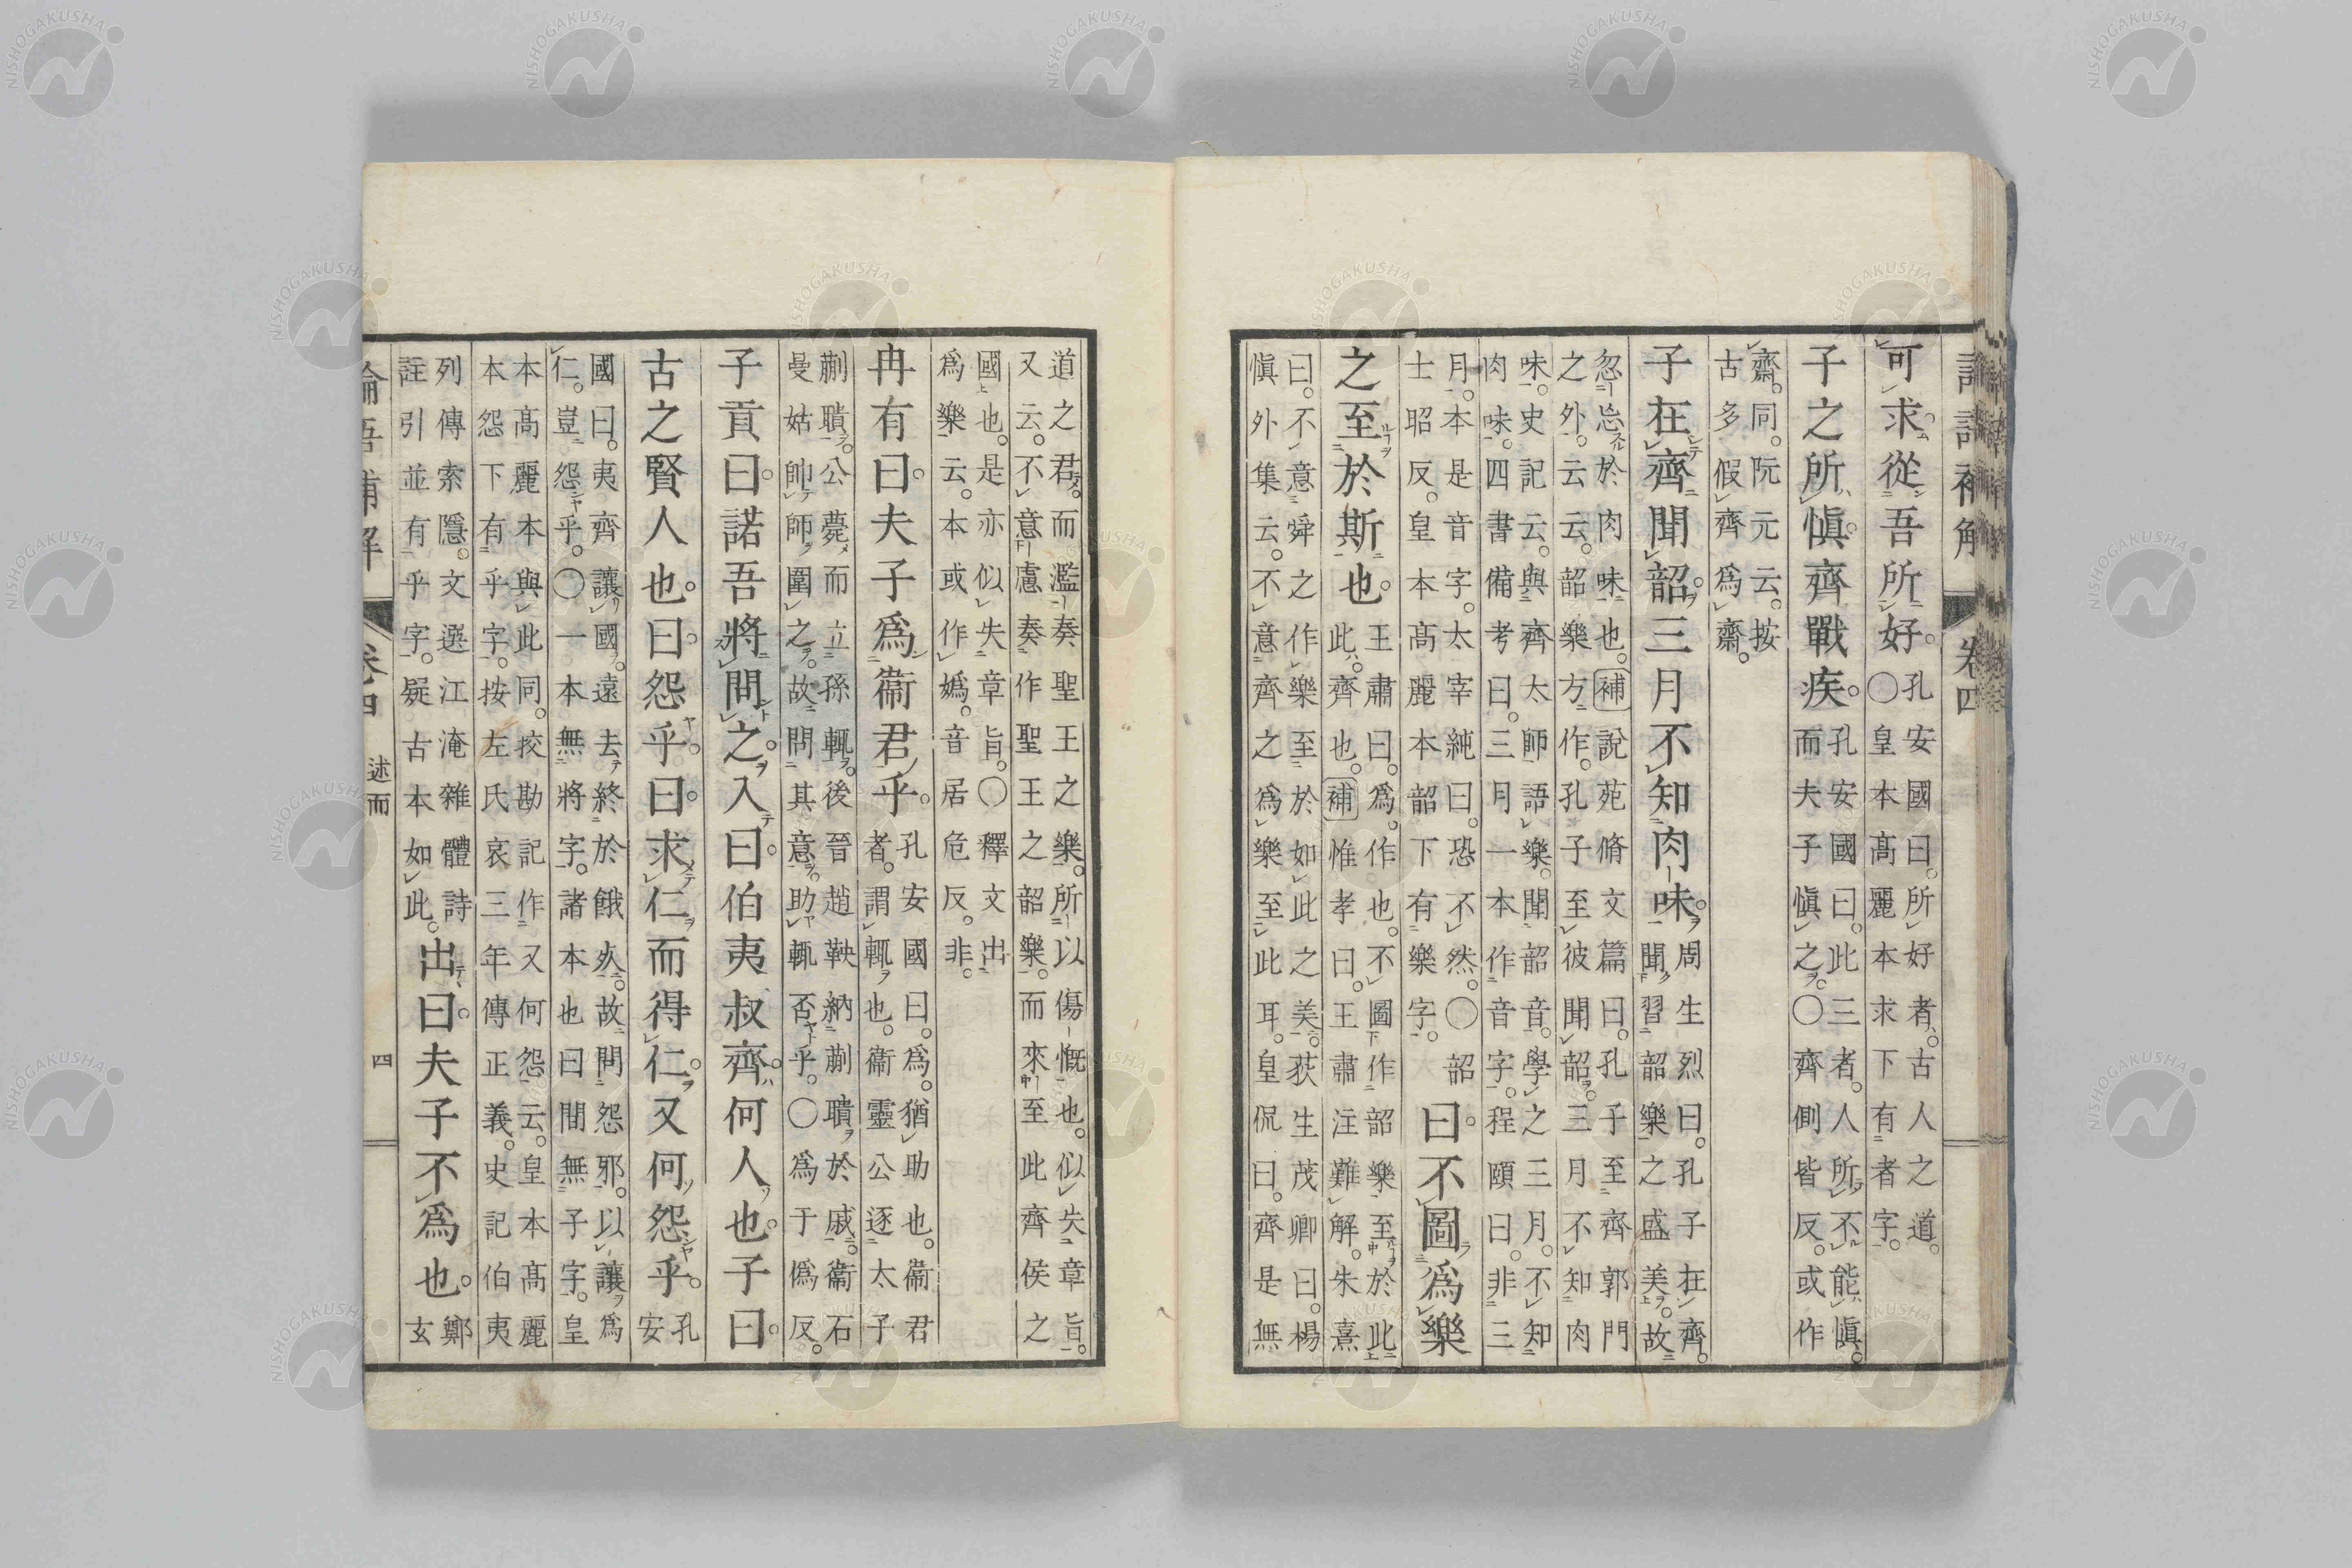 語補解 卷四
可求從吾所好。孔安國曰。所好者。古人之道。
〇皇本高麗本求下有者字。
子之所愼齊戰疾。孔安國曰。此三者。人所不能愼。
而夫子愼之。〇齊側皆反。或作
齋。同。阮元云。按
古多假齊爲齋。
子在齊聞韶三月不知肉味。周生烈曰。孔子在齊。
聞習韶樂之盛美。故
忽忘於肉味也。補說苑脩文篇曰。孔子至齊郭門
之外。云云。韶樂方作。孔子至彼聞韶。三月不知肉
味。史記云。與齊太師語樂。聞韶音。學之三月。不知
肉味。四書備考曰。三月一本作音字。程頤曰。非三
月。本是音字。太宰純曰。恐不然。〇韶
士昭反。皇本高麗本韶下有樂字。曰。不圖爲樂
之至於斯也。王肅曰。爲。作也。不圖作韶樂至於此
此。齊也。補惟孝曰。王肅注難解。朱熹
曰。不意舜之作樂至於如此之美。荻生茂卿曰。楊
愼外集云。不意齊之爲樂至此耳。皇侃曰。齊是無
道之君。而濫奏聖王之樂。所以傷慨也。似失章旨。
又云。不意慮奏作聖王之韶樂。而來至此齊侯之
國也。是亦似失章旨。〇釋文出
爲樂云。本或作嬀。音居危反。非。
冉有曰。夫子爲衞君乎。孔安國曰。爲。猶助也。衞君
者。謂輒也。衞靈公逐太子
蒯聵。公薨。而立孫輒。後晉趙鞅納蒯聵於戚。衞石
曼姑帥師圍之。故問其意。助輒否乎。〇爲于僞反。
子貢曰。諾吾將問之。入曰。伯夷叔齊何人也。子曰。
古之賢人也。曰。怨乎。曰。求仁而得仁。又何怨乎。孔安
國曰。夷齊讓國。遠去終於餓死。故問怨邪。以讓爲
仁。豈怨乎。〇一本無將字。諸本也曰間無子字。皇
本高麗本與此同。挍勘記作又何怨云。皇本高麗
本怨下有乎字。按左氏哀三年傳正義。史記伯夷
列傳索隱。文選江淹雜體詩
註引並有乎字。疑古本如此。出曰。夫子不爲也。鄭玄
論語補解 卷四 述而 四
NISHOGAKUSHA